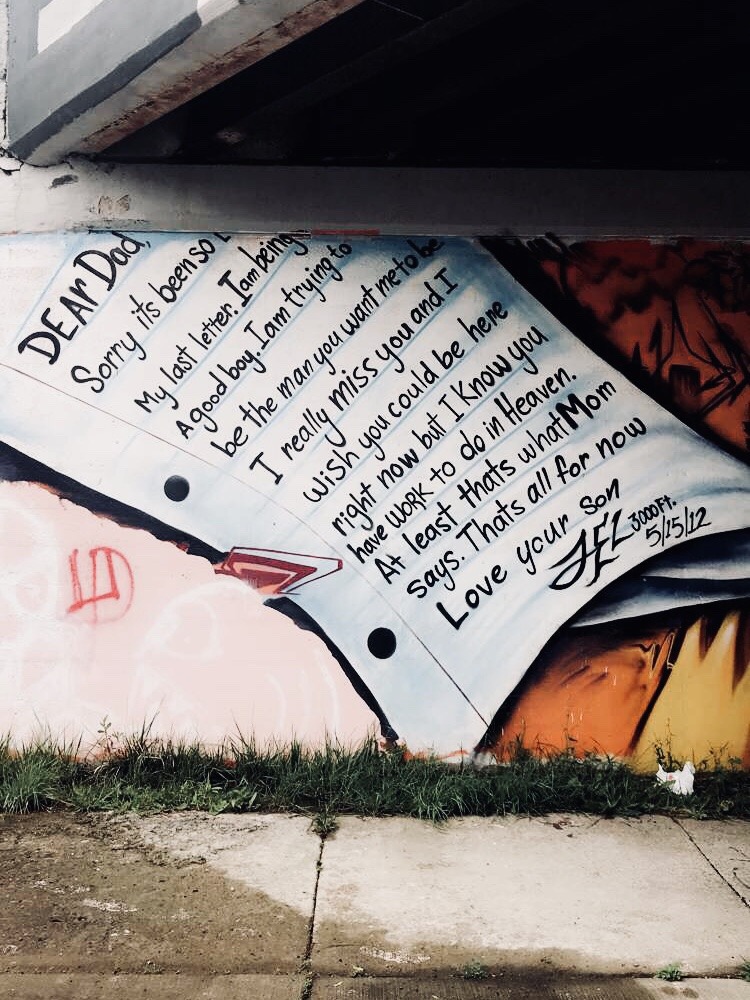 DEAr Dad,
Sorry its been so
My last letter. I am being
A good boy. I am trying to
be the man you want me to be
I really miss you and I
wish you could be here
right now but I Know you
have work to do in Heaven.
At least thats what Mom
says. Thats all for now
Love your son
3000 Ft.
5/15/12